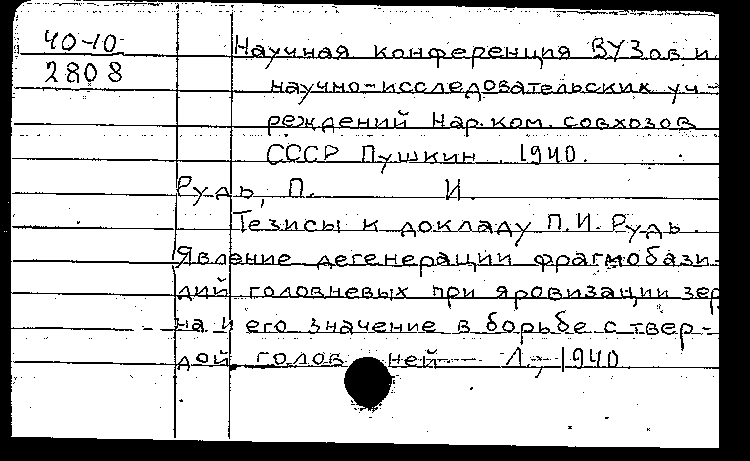 40-10
2808
Научная конференция ВУЗов и
научно-исследовательских уч-
реждений Нар.ком. совхозов
СССР Пушкин. 1940.
Рудь, П. И.
Тезисы к докладу П.И. Рудь.
Явление дегенерации фрагмобази-
дий головневых при яровизации зер
на и его значение в борьбе с твер-
дой голов ней — Л., 1940